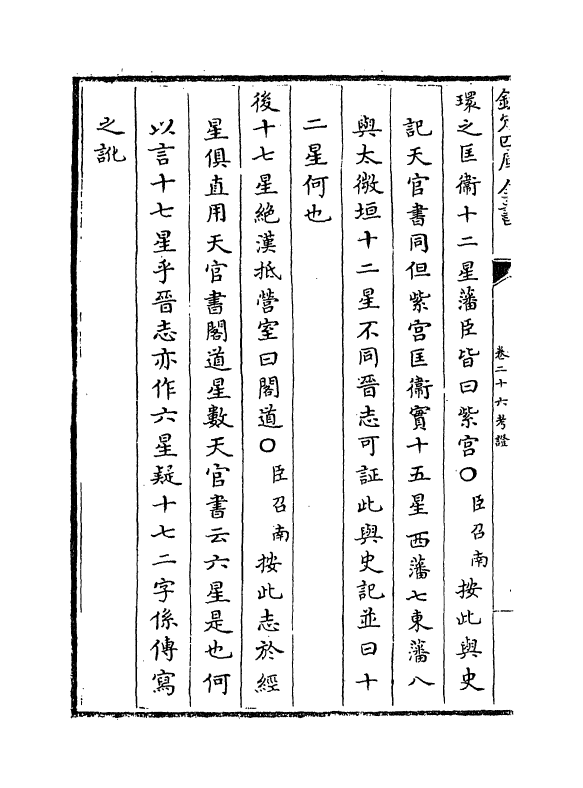 欽定四庫全書
卷二十六考證
環之匡衞十二星藩臣皆曰紫宮○臣召南按此與史
記天官書同但紫宮匡衞實十五星西藩七東藩八
與太微垣十二星不同晉志可証此與史記並曰十
二星何也
後十七星絶漢抵營室曰閣道○臣召南按此志於經
星俱直用天官書閣道星數天官書云六星是也何
以言十七星乎晉志亦作六星疑十七二字係傳寫
之訛